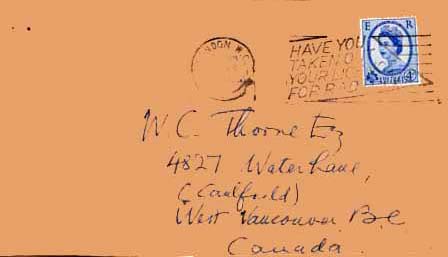 E R
LONDON W.C.
HAVE YOU
TAKEN O
YOUR LIC
FOR RAD
4D
W. C. Thorne Esq
4827 Water Lane,
(Caulfeild)
West Vancouver B.C
Canada.